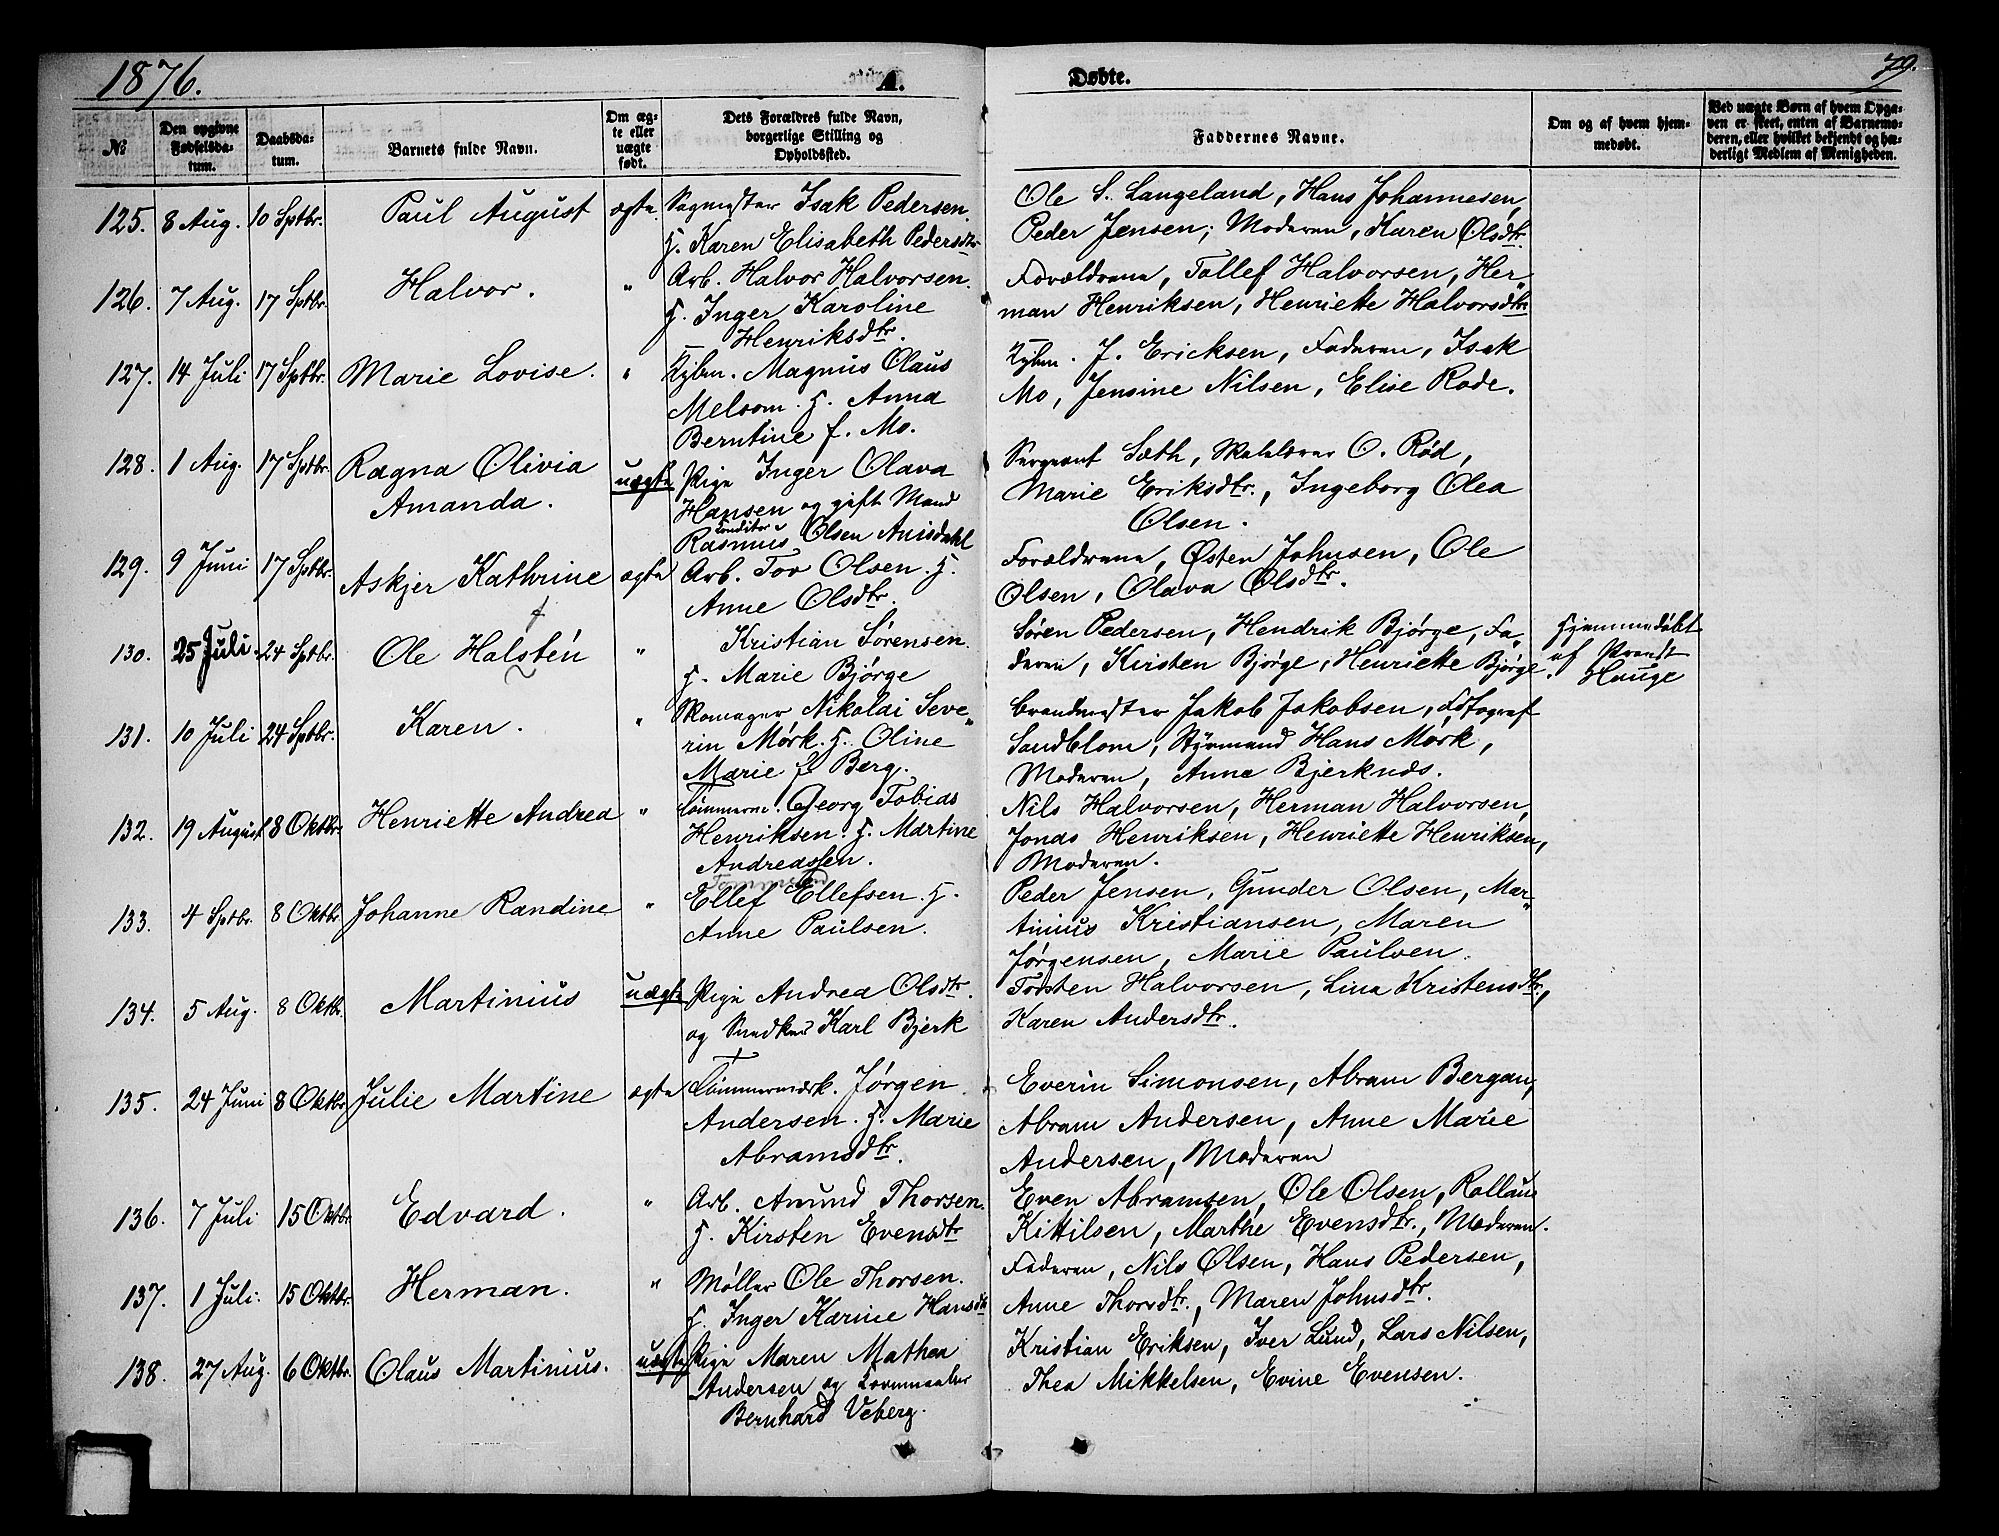 1876. A. Døbte. 79.
№ Den opgivne Fødselsdatum. Daabsdatum. Barnets fulde Navn. Om ægte eller uægte født. Dets Forældres fulde Navn, borgerlige Stilling og Opholdssted. Faddernes Navne. Om og af hvem hjemmedøbt. Ved uægte Børn af hvem Opgaven er skeet, enten af Barnemoderen, eller hvilket bekjendt og hæderligt Medlem af Menigheden.
125. 8 Aug. 10 Sptbr. Paul August ægte. Sagmester Isak Pedersen. Ole S. Langeland, Hans Johannesen,
H. Karen Elisabeth Pedersdtr Peder Jensen; Moderen, Karen Olsdtr.
126. 7 Aug. 17 Sptbr. Halvor. " Arb. Halvor Halvorsen. Forældrene, Tollef Halvorsen, Her-
H. Inger Karoline man Henriksen, Henriette Halvorsdtr.
Henriksdtr.
127. 14 Juli 17 Sptbr. Marie Lovise. " Kjbm. Magnus Olaus Kjbm. J. Ericksen, Faderen, Isak
Melsom. H. Anna Mo, Jensine Nilsen, Elise Rode.
Berntine f. Mo.
128. 1 Aug. 17 Sptbr. Ragna Olivia uægte Pige Inger Olava Sergeant Sæth, Skolelærer O. Rød,
Amanda. Hansen og gift Mand Marie Eriksdtr., Ingeborg Olea
Konditor Rasmus Olsen Anisdahl Olsen.
129. 9 Juni 17 Sptbr. Askjer Kathrine ægte Arb. Tov Olsen. H. Forældrene, Østen Johnsen, Ole
Anne Olsdtr. Olsen, Olava Olsdtr.
130. 25 Juli. 24 Sptbr. Ole Halstén " Kristian Sørensen. Søren Pedersen, Hendrik Bjørge, Fa- Hjemmedøbt
H. Marie Bjørge deren, Kirsten Bjørge, Henriette Bjørge. af Provst Hauge
131. 10 Juli 24 Sptbr. Karen. " Skomager Nikolai Seve- Brandmester Jakob Jakobsen, Fotograf
rin Mørk. H. Oline Sandblom, Styrmand Hans Mørk,
Marie f Berg. Moderen, Anne Bjerknes.
132. 19 August 8 Oktbr. Henriette Andrea " Tømmerm. Georg Tobias Nils Halvorsen, Herman Halvorsen,
Henriksen. H. Martine Jonas Henriksen, Henriette Henriksen,
Andreassen. Moderen.
133. 4 Sptbr. 8 Oktbr. Johanne Randine " Ellef Ellefsen. H. Peder Jensen, Gunder Olsen, Mar-
Anne Paulsen. tinius Kristiansen, Maren
Jørgensen, Marie Paulsen.
134. 5 Aug. 8 Oktbr. Martinius uægte Pige Andrea Olsdtr. Torsten Halvorsen, Lina Kristensdtr.,
og Snedker Karl Bjerk Karen Andersdtr.
135. 24 Juni 8 Oktbr. Julie Martine ægte Tømmermærk. Jørgen Everin Simonsen, Abram Bergan,
Andersen. H. Marie Abram Andersen, Anne Marie
Abramsdtr. Andersen, Moderen
136. 7 Juli 15 Oktbr. Edvard. " Arb. Amund Thorsen. Even Abramsen, Ole Olsen, Rollaue
H. Kirsten Evensdtr Kittilsen, Marthe Evensdtr., Moderen.
137. 1 Juli. 15 Oktbr. Herman. " Møller Ole Thorsen. Faderen, Nils Olsen, Hans Pedersen,
H. Inger Karine Hansdtr Anne Thorsdtr., Maren Johnsdtr.
138. 27 Aug. 6 Oktbr. Olaus Martinius. uægte Pige Maren Mathea Kristian Eriksen, Iver Lund, Lars Nilsen,
Andersen og Kornmaaler Thea Mikkelsen, Evine Evensen.
Bernhard Veberg.